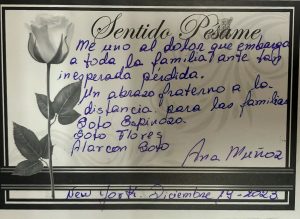 Sentido Pésame
Me uno al dolor que embarga
a toda la familia Tante tan
inesperada perdida.
Un abrazo fraterno a la
distancia para las familias
Soto Espinoza
Soto Flores
Alarcon Soto
Ana Muñoz
New York. Diciembre 19-2023